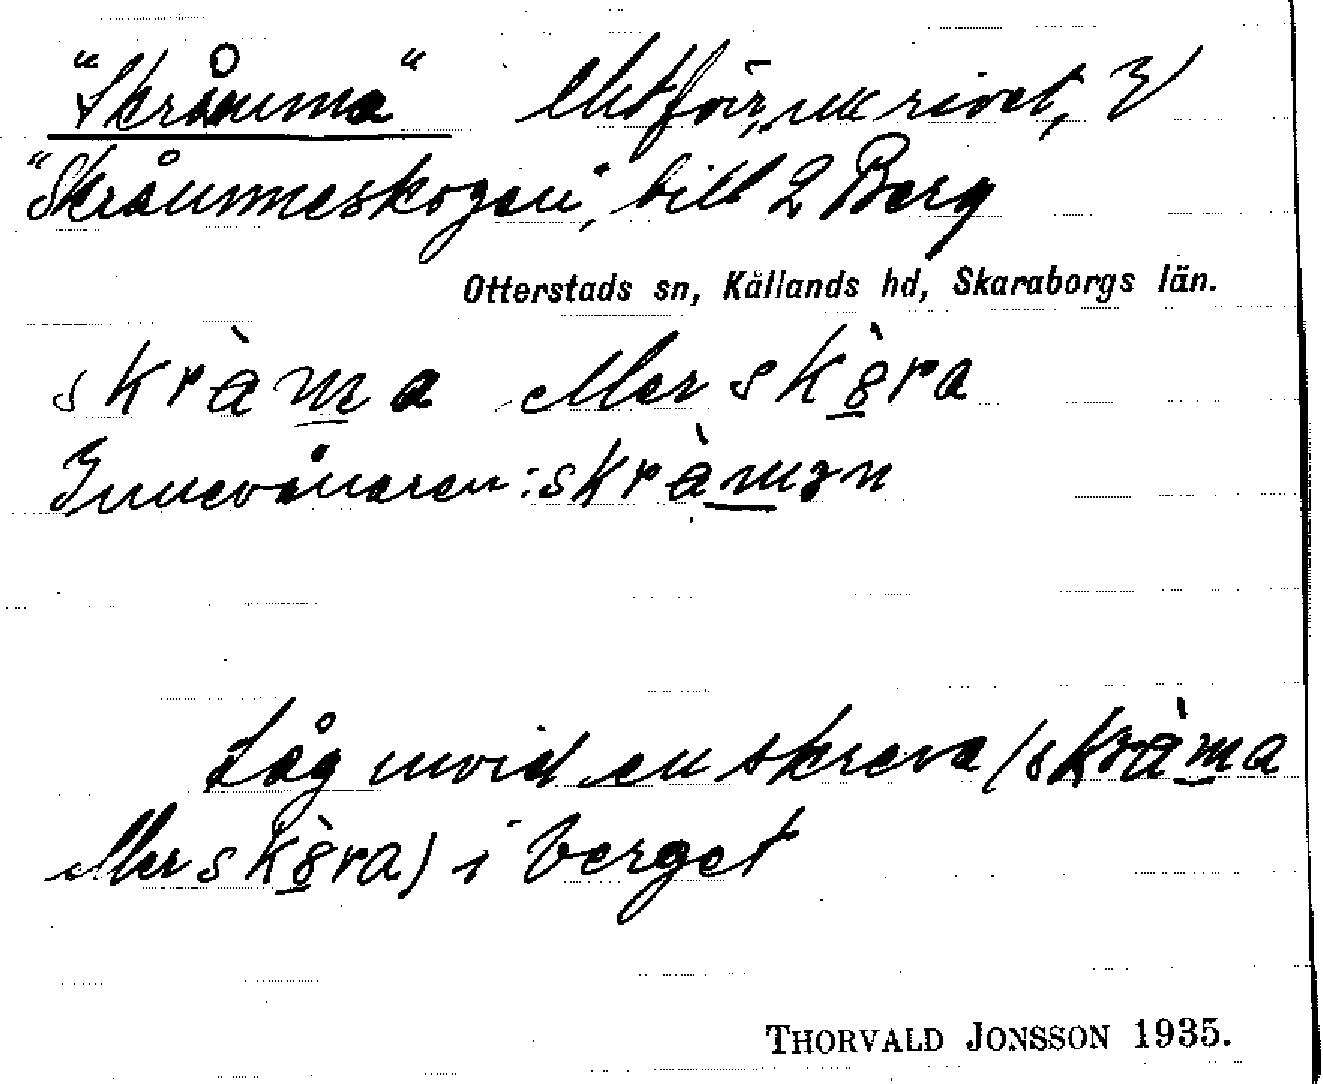 "Skråmma" Utför, ukrivet, V
"Skråmmeskogen", till 2 Berg
Otterstads sn, Kållands hd, Skaraborgs län.
skràma eller skòra
Innevånaren: skràmən
Låg invid en skreva (skràma
eller skòra) i berget
THORVALD JONSSON 1935.